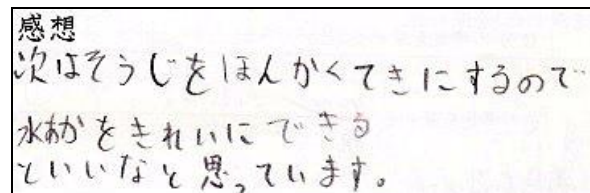 感想
次はそうじをほんかくてきにするので
水あかをきれいにできる
といいなと思っています。